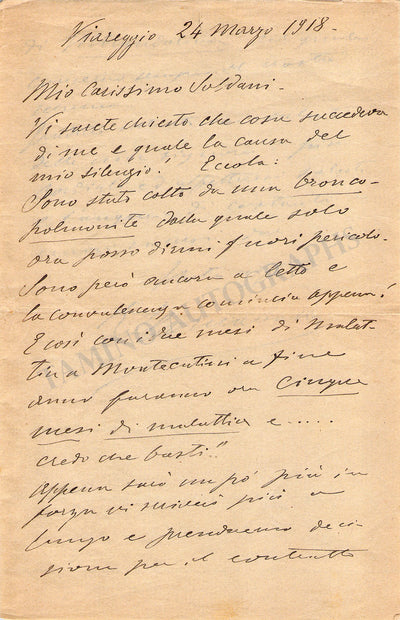 Viareggio 24 Marzo 1918-
Mio Carissimo Soldani-
Vi sarete chiesto che cosa succedeva
di me e quale la causa del
mio silenzio! Eccola:
Sono stato colto da una bronco-
polmonite dalla quale solo
ora posso dirmi fuori pericolo.
Sono però ancora a letto e
la convalescenza comincia appena!
E così con due mesi di malat-
tia a Montecatini a fine
anno faranno ora cinque
mesi di malattia e .....
credo che basti!!
Appena sarò un pò più in
forza vi scriverò più a
lungo e prenderemo deci-
sione per il contratto
TAMINO AUTOGRAPHS